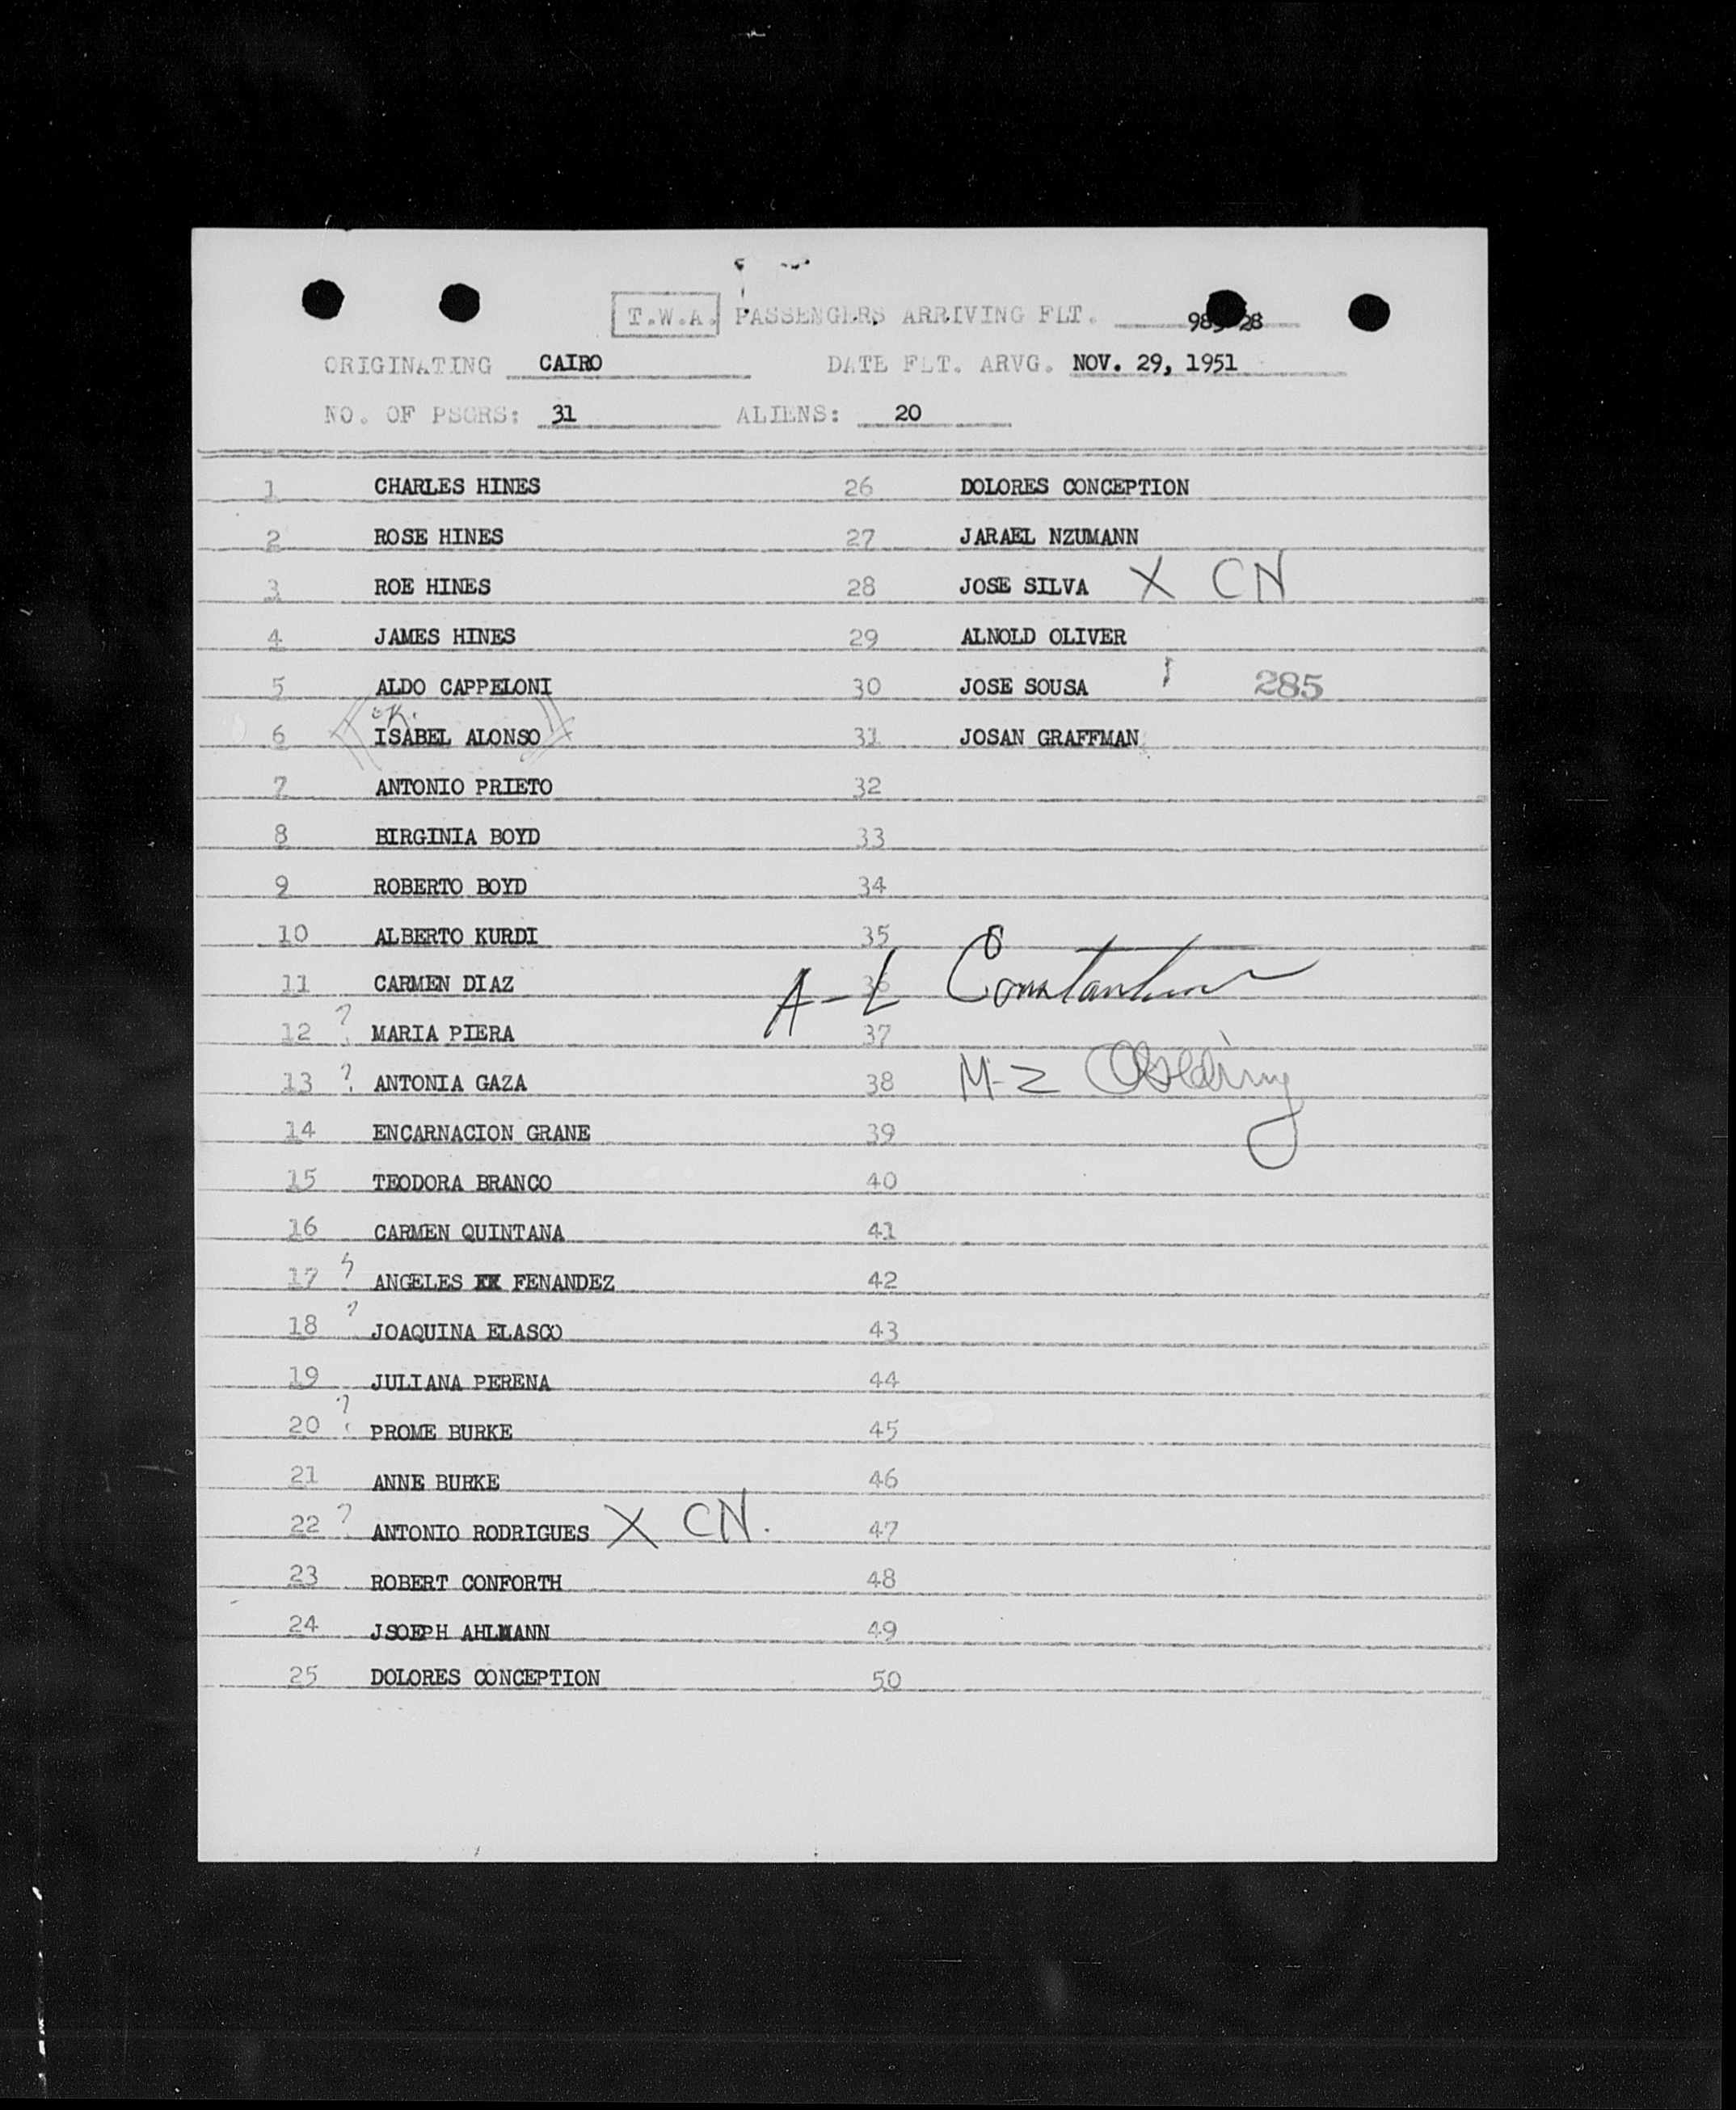 T.W.A. PASSENGERS ARRIVING FLT. 28
ORIGINATING CAIRO DATE FLT. ARVG. NOV. 29, 1951
NO. OF PSGRS: 31 ALIENS: 20
1 CHARLES HINES 26 DOLORES CONCEPTION
2 ROSE HINES 27 JARAEL NZUMANN
3 ROE HINES 28 JOSE SILVA X CN
4 JAMES HINES 29 ALNOLD OLIVER
5 ALDO CAPPELONI 30 JOSE SOUSA 285
OK.
6 ISABEL ALONSO 31 JOSAN GRAFFMAN
7 ANTONIO PRIETO 32
8 BIRGINIA BOYD 33
9 ROBERTO BOYD 34
10 ALBERTO KURDI 35
11 CARMEN DIAZ 36 A-L
12 ? MARIA PIERA 37
13 ? ANTONIA GAZA 38 M-Z
14 ENCARNACION GRANE 39
15 TEODORA BRANCO 40
16 CARMEN QUINTANA 41
17 ? ANGELES FENANDEZ 42
18 ? JOAQUINA ELASCO 43
19 JULIANA PERENA 44
20 ? PROME BURKE 45
21 ANNE BURKE 46
22 ? ANTONIO RODRIGUES X CN. 47
23 ROBERT CONFORTH 48
24 JSOEPH AHLMANN 49
25 DOLORES CONCEPTION 50